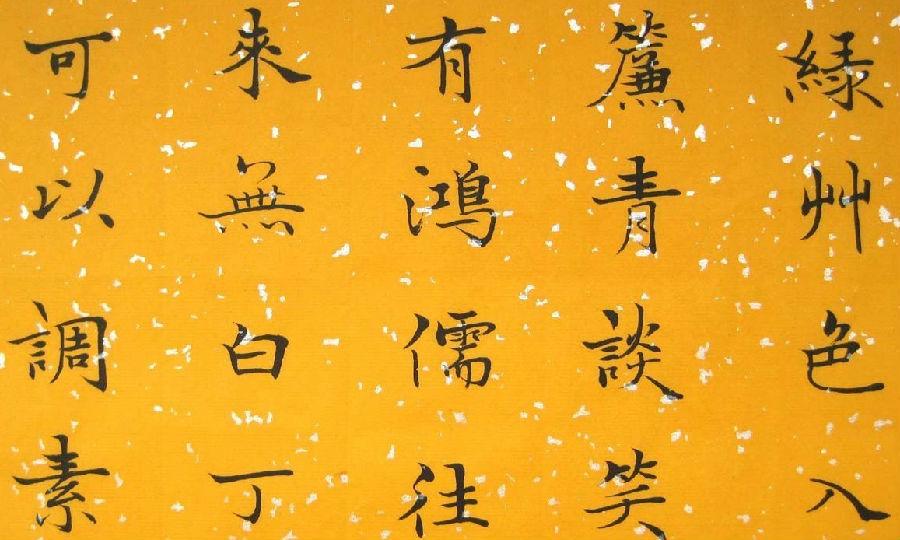 綠艸色入
簾青談笑
有鴻儒往
來無白丁
可以調素